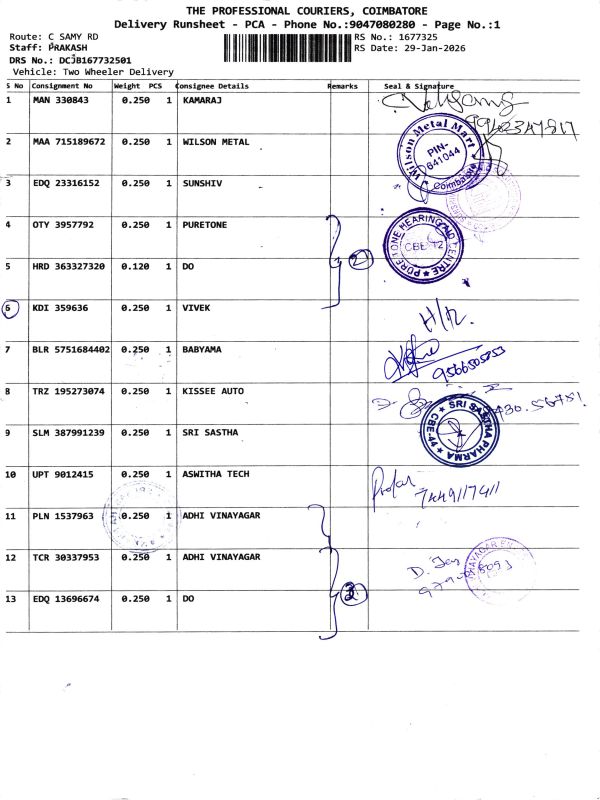 THE PROFESSIONAL COURIERS, COIMBATORE
Delivery Runsheet - PCA - Phone No.:9047080280 - Page No.:1
Route: C SAMY RD
RS No.: 1677325
Staff: PRAKASH
RS Date: 29-Jan-2026
DRS No.: DCJB167732501
Vehicle: Two Wheeler Delivery
S No Consignment No Weight PCS Consignee Details Remarks Seal & Signature
1 MAN 330843 0.250 1 KAMARAJ
2 MAA 715189672 0.250 1 WILSON METAL
Wilson Metal Mart
PIN-
641044
Coimbatore
3 EDQ 23316152 0.250 1 SUNSHIV
4 OTY 3957792 0.250 1 PURETONE
PURETONE HEARING AID CENTRE
CBE-12
5 HRD 363327320 0.120 1 DO
2
6 KDI 359636 0.250 1 VIVEK
H/12.
7 BLR 5751684402 0.250 1 BABYAMA
9566505753
8 TRZ 195273074 0.250 1 KISSEE AUTO
9 SLM 387991239 0.250 1 SRI SASTHA
SRI SASTHA PHARMA
CBE-44
10 UPT 9012415 0.250 1 ASWITHA TECH
11 PLN 1537963 0.250 1 ADHI VINAYAGAR
12 TCR 30337953 0.250 1 ADHI VINAYAGAR
13 EDQ 13696674 0.250 1 DO
3